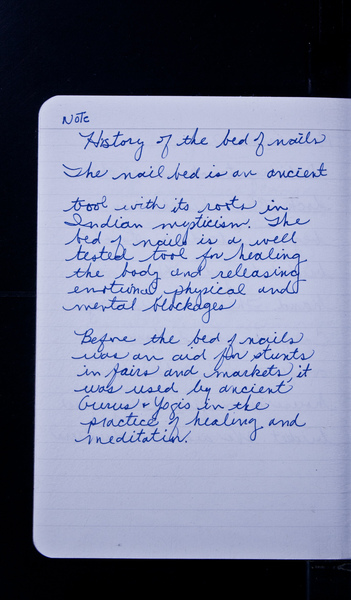 Note
History of the bed of nails
The nail bed is an ancient
tool with its roots in
Indian mysticism. The
bed of nails is a well
tested tool for healing
the body and releasing
emotional physical and
mental blockages
Before the bed of nails
was an aid for stunts
in fairs and markets, it
was used by ancient
Gurus + Yogis in the
practice of healing and
meditation.